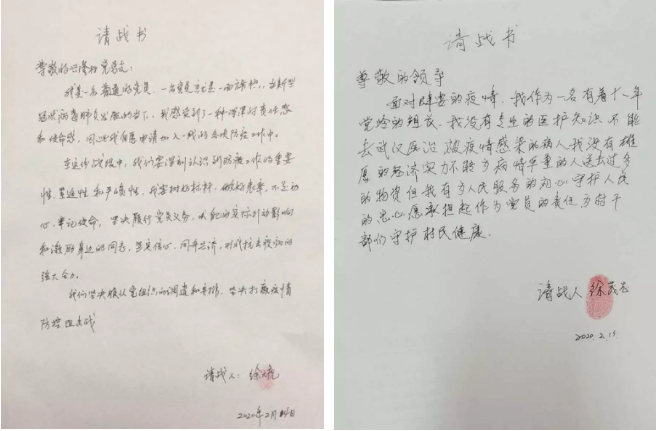 请战书
尊敬的兴隆村党委:
我是一名普通的党员,一名党员就是一面旗帜,在新型
冠状病毒肺炎发生的当下,我感觉到了一种深深的责任感
和使命感,因此我自愿申请加入一线的冬季防疫工作中。
在这场战役中,我们要深刻认识到防疫工作的重要
性、紧迫性和严峻性,我要树好标杆,做好表率,不忘初
心、牢记使命,坚决履行党员义务,以我的实际行动影响
和激励身边的同志,坚定信心、同舟共济,形成抗击疫情的
强大合力。
我们坚决服从党组织的调遣和安排,坚决打赢疫情
防控阻击战
请战人:徐
2020年2月 日
请战书
尊敬的领导
面对肆虐的疫情,我作为一名有着十一年
党龄的组长,我没有专业的医护知识不能
去武汉医治被疫情感染的病人我没有雄
厚的经济实力不能为病情严重的人送去过多
的物资但我有为人民服务的初心守护人民
的忠心愿承担起作为党员的责任为村干
部们守护村民健康.
请战人 徐
2020.2.15